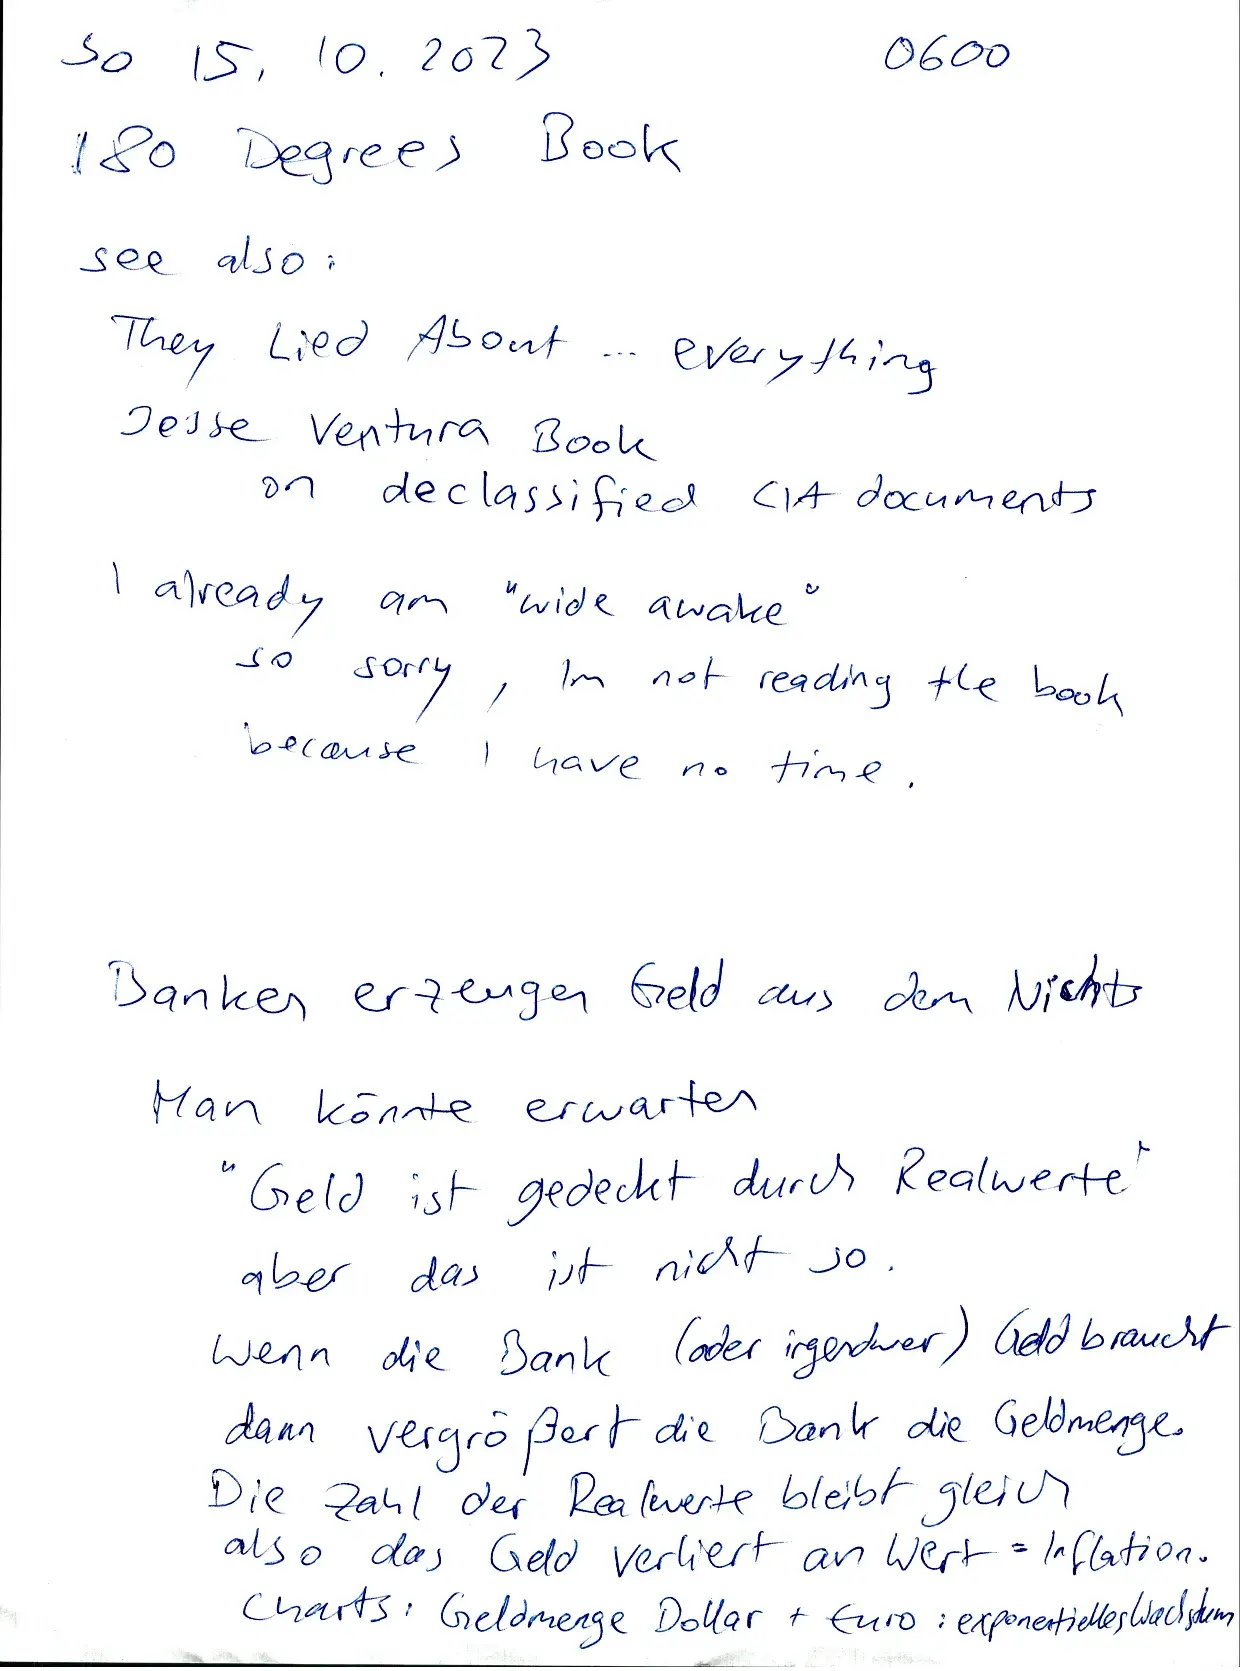 So 15. 10. 2023 0600
180 Degrees Book
see also:
They Lied About ... everything
Jesse Ventura Book
on declassified CIA documents
I already am "wide awake"
so sorry, Im not reading the book
because I have no time.
Banken erzeugen Geld aus dem Nichts
Man könnte erwarten
"Geld ist gedeckt durch Realwerte"
aber das ist nicht so.
Wenn die Bank (oder irgendwer) Geld braucht
dann vergrößert die Bank die Geldmenge.
Die Zahl der Realwerte bleibt gleich
also das Geld verliert an Wert = Inflation.
Charts: Geldmenge Dollar + Euro: exponentielles Wachstum